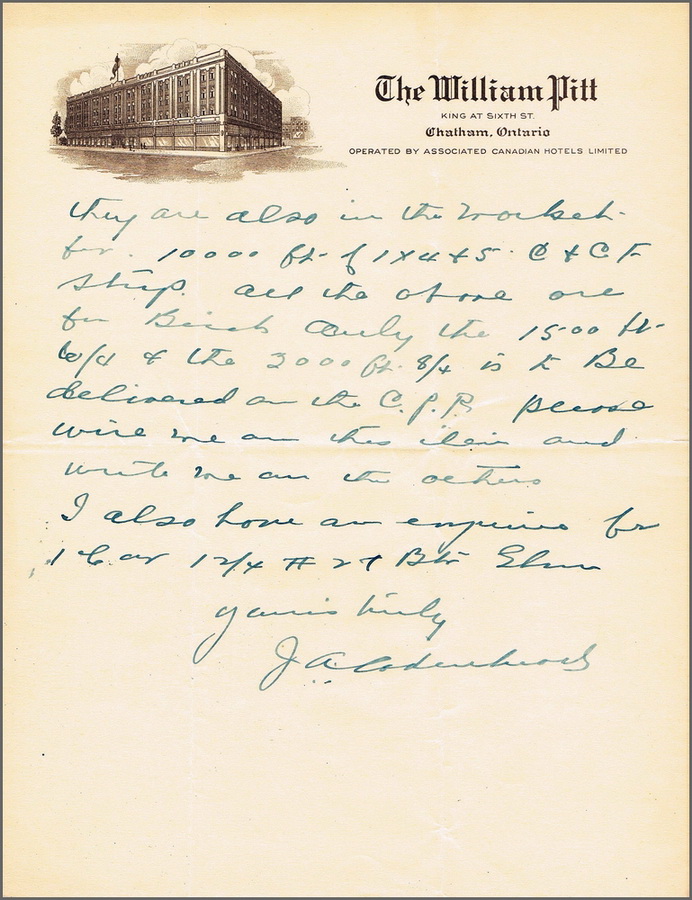 The William Pitt
KING AT SIXTH ST.
Chatham, Ontario
OPERATED BY ASSOCIATED CANADIAN HOTELS LIMITED
they are also in the market
for. 10000 ft. of 1X4+5. C & C F
Strip. all the above are
for Birch Only the 1500 ft.
6/4 & the 2000 ft. 8/4 is to Be
delivered on the C.P.R. please
wire me on this item and
write me on the others
I also have an enquirie for
1 Car 12/4 # 2 + Btr Elm
yours truly
J A